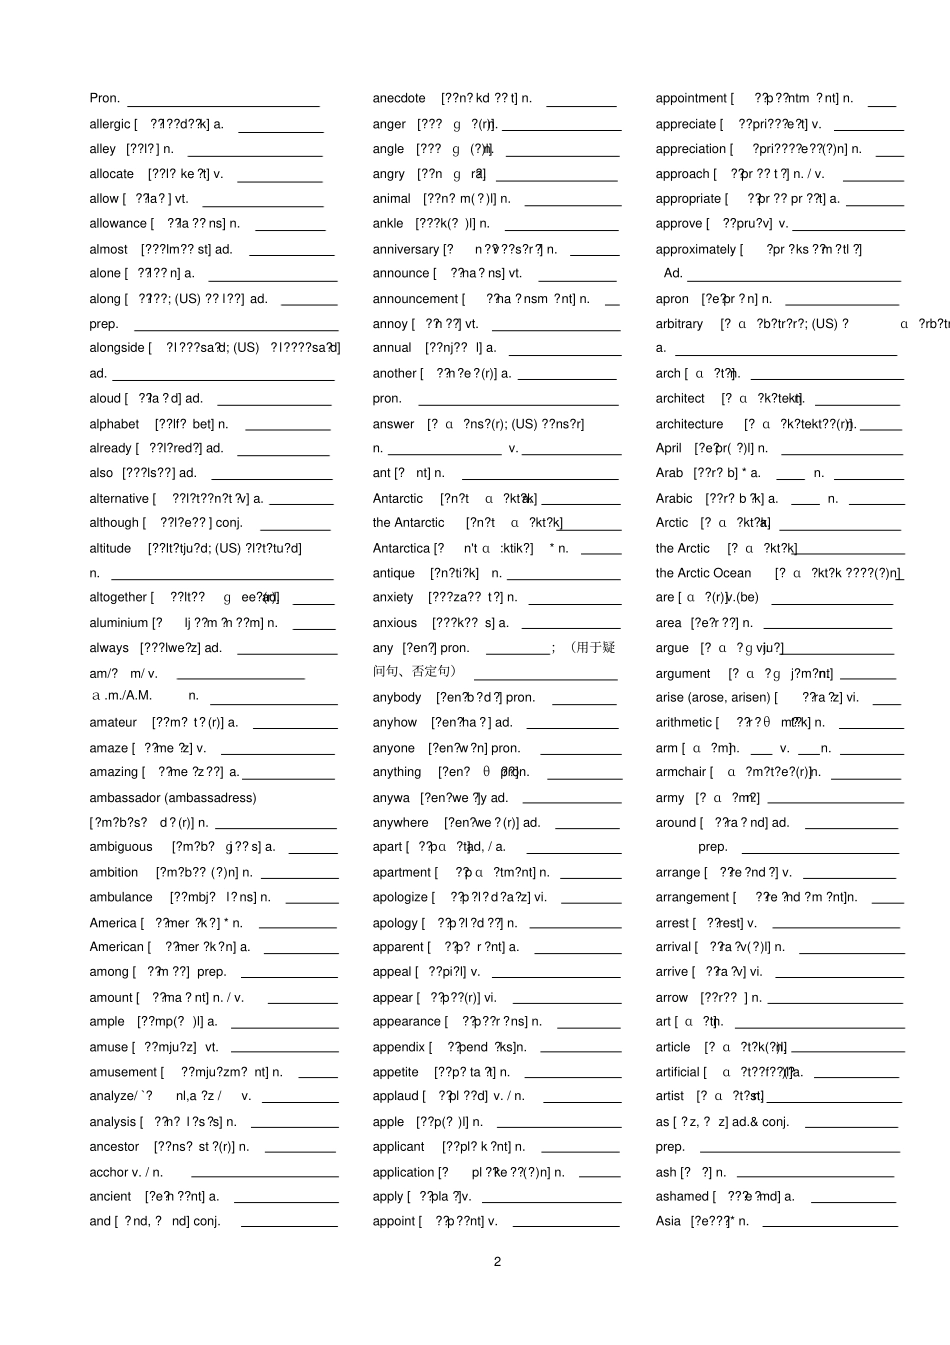 Pron.
allergic [ ??l??d??k] a.
alley [??l? ] n.
allocate [??l? ke ?t] v.
allow [ ??la? ] vt.
allowance [ ??la ?? ns] n.
almost [???lm?? st] ad.
alone [ ??l?? n] a.
along [ ??l??; (US) ?? l??] ad.
prep.
alongside [ ?l ???sa?d; (US) ?l????sa?d]
ad.
aloud [ ??la ? d] ad.
alphabet [??lf? bet] n.
already [??l?red?] ad.
also [???ls??] ad.
alternative [ ??l?t??n?t ?v] a.
although [ ??l?e?? ] conj.
altitude [??lt?tju?d; (US) ?l?t?tu?d]
n.
altogether [ ??lt?? ɡ ee?(r)] ad.
aluminium [? lj ??m ?n ??m] n.
always [???lwe?z] ad.
am/? m/ v.
a.m./A.M. n.
amateur [??m? t? (r)] a.
amaze [ ??me ?z] v.
amazing [ ??me ?z ??] a.
ambassador (ambassadress)
[?m?b?s? d ? (r)] n.
ambiguous [?m?b? ɡj?? s] a.
ambition [?m?b?? (?)n] n.
ambulance [??mbj? l? ns] n.
America [ ??mer ?k ?] * n.
American [ ??mer ?k ?n] a.
among [ ??m ??] prep.
amount [ ??ma ? nt] n. / v.
ample [??mp(? )l] a.
amuse [ ??mju?z] vt.
amusement [ ??mju?zm? nt] n.
analyze/ `? nl,a ?z / v.
analysis [ ??n? l ?s ?s] n.
ancestor [??ns? st ?(r)] n.
acchor v. / n.
ancient [?e?n ??nt] a.
and [ ? nd, ? nd] conj.
anecdote [??n? kd ?? t] n.
anger [??? ɡ ?(r)] n.
angle [??? ɡ (?)l] n.
angry [??n ɡ r?] a.
animal [??n? m( ? )l] n.
ankle [???k(? )l] n.
anniversary [? n ?v??s?r ?] n.
announce [ ??na ? ns] vt.
announcement [ ??na ? nsm ?nt] n.
annoy [ ??n ??] vt.
annual [??nj?? l] a.
another [ ??n ?e ?(r)] a.
pron.
answer [? ɑ ?ns?(r); (US) ??ns?r]
n. v.
ant [? nt] n.
Antarctic [?n?t ɑ ?kt?k] a.
the Antarctic [?n?t ɑ ?kt?k]
Antarctica [? n't ɑ :ktik?] * n.
antique [?n?ti?k] n.
anxiety [???za?? t ?] n.
anxious [???k?? s] a.
any [?en?] pron. ; （用于疑
问句、否定句）
anybody [?en?b ?d ?] pron.
anyhow [?en?ha ? ] ad.
anyone [?en?w ?n] pron.
anything [?en? θ ??] pron.
anywa [?en?we ?]y ad.
anywhere [?en?we ? (r)] ad.
apart [ ??pɑ ?t] ad, / a.
apartment [ ??p ɑ ?tm?nt] n.
apologize [ ??p ?l ? d ?a?z] vi.
apology [ ??p ?l ?d ??] n.
apparent [ ??p? r ?nt] a.
appeal [ ??pi?l] v.
appear [ ??p??(r)] vi.
appearance [ ??p??r ?ns] n.
appendix [ ??pend ?ks]n.
appetite [??p? ta ?t] n.
applaud [ ??pl ??d] v. / n.
apple [??p(? )l] n.
applicant [??pl? k ?nt] n.
application [? pl ??ke ??(?)n] n.
apply [ ??pla ?]v.
appoint [ ??p ??nt] v.
appointment [ ??p ??ntm ? nt] n.
appreciate [ ??pri???e?t] v.
appreciation [ ?pri????e??(?)n] n.
approach [ ??pr ?? t ?] n. / v.
appropriate [ ??pr ?? pr ??t] a.
approve [ ??pru?v] v.
approximately [ ?pr ?ks ??m ?tl ?]
Ad.
apron [?e?pr ? n] n.
arbitrary [? ɑ ?b?tr?r?; (US) ? ɑ ?rb?tr
a.
arch [ ɑ ?t?] n.
architect [? ɑ ?k?tekt] n.
architecture [? ɑ ?k?tekt??(r)] n.
April [?e?pr( ?)l] n.
Arab [??r? b] * a. n.
Arabic [??r? b ?k] a. n.
Arctic [? ɑ ?kt?k] a.
the Arctic [? ɑ ?kt?k]
the Arctic Ocean [? ɑ ?kt?k ????(?)n]
are [ ɑ ?(r)] v.(be)
area [?e?r ??] n.
argue [? ɑ ?ɡ ju?] vi.
argument [? ɑ ?ɡ j?m?nt] n.
arise (arose, arisen) [ ??ra ?z] vi.
arithmetic [ ??r ? θ m?t?k] n.
arm [ ɑ ?m] n. v. n.
armchair [ ɑ ?m?t?e?(r)] n.
army [? ɑ ?m?] n.
around [ ??ra ? nd] ad.
prep.
arrange [ ??re ?nd ?] v.
arrangement [ ??re ?nd ?m ?nt]n.
arrest [ ??rest] v.
arrival [ ??ra ?v( ?)l] n.
arrive [ ??ra ?v] vi.
arrow [??r?? ] n.
art [ ɑ ?t] n.
article [? ɑ ?t?k(?)l] n.
artificial [ ɑ ?t??f??(?)l] a.
artist [? ɑ ?t?st] n.
as [ ? z, ? z] ad.& conj.
prep.
ash [? ?] n.
ashamed [ ???e ?md] a.
Asia [?e???]* n.
2